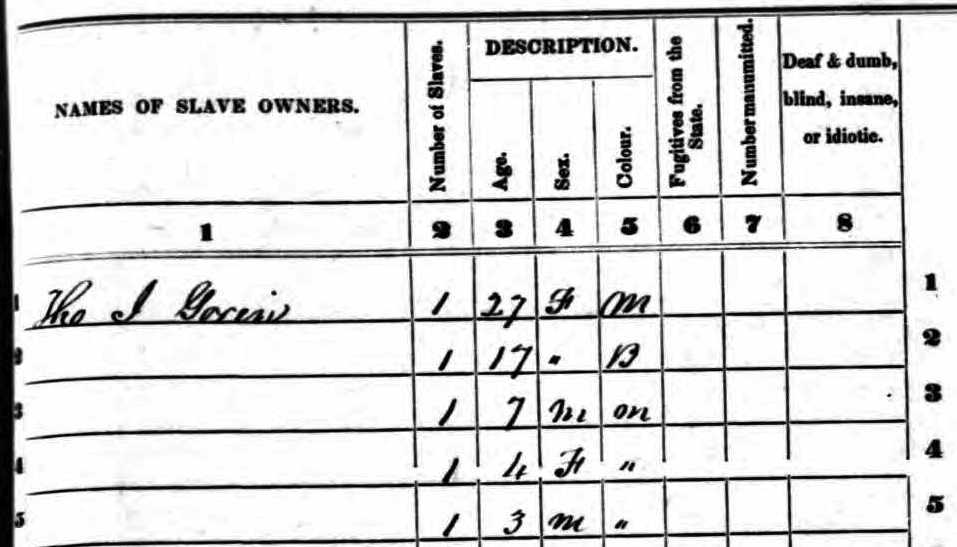 NAMES OF SLAVE OWNERS.
Number of Slaves.
DESCRIPTION.
Age.
Sex.
Colour.
Fugitives from the State.
Number manumitted.
Deaf & dumb,
blind, insane,
or idiotic.
1 2 3 4 5 6 7 8
1 Tho I 1 27 F M 1
2 1 17 " B 2
3 1 7 m m 3
4 1 4 F " 4
5 1 3 m " 5